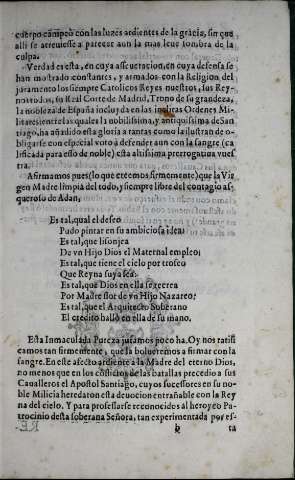 cuerpo campeò con las luzes ardientes de la gracia, sin que
alli se atreuiesse a parecer aun la mas leue sombra de la
culpa.
Verdad es esta, en cuya asseueracion, en cuya defensa se
han mostrado constantes, y armados con la Religion del
juramento los siempre Catolicos Reyes nuestros, sus Rey-
nos todos, su Real Corte de Madrid, Trono de su grandeza,
la nobleza de España incluyda en las inclitas Ordenes Mi-
litares; entre las quales la nobilissima, y antiquissima de San-
tiago, ha añadido esta gloria a tantas como la ilustran de o-
bligarse con especial voto a defender aun con la sangre (ca
lificada para esso de noble) esta altissima prerrogatiua vues
tra.
Afirmamos pues (lo que creemos firmemente) que la Vir
gen Madre limpia del todo, y siempre libre del contagio as
queroso de Adan,
Es tal, qual el deseo
Pudo pintar en su ambiciosa idea:
Es tal, que lisonjea
De vn Hijo Dios el Maternal empleo;
Es tal, que tiene el cielo por trofeo
Que Reyna suya sea:
Es tal, que Dios en ella se recrea
Por Madre flor de vn Hijo Nazareo;
Es tal, que el Arquitecto Soberano
El credito hallò en ella de su mano.
Esta Inmaculada Pureza juramos poco ha. Oy nos ratifi
camos tan firmemente, que la bolueremos a firmar con la
sangre. En este afecto ardiente a la Madre del eterno Dios,
no menos que en los conflictos de las batallas precedio a sus
Caualleros el Apostol Santiago, cuyos sucessores en su no-
ble Milicia heredaron esta deuocion entrañable con la Rey
na del cielo. Y para professarse reconocidos al heroyco Pa-
trocinio desta soberana Señora, tan experimentada por es-
ta